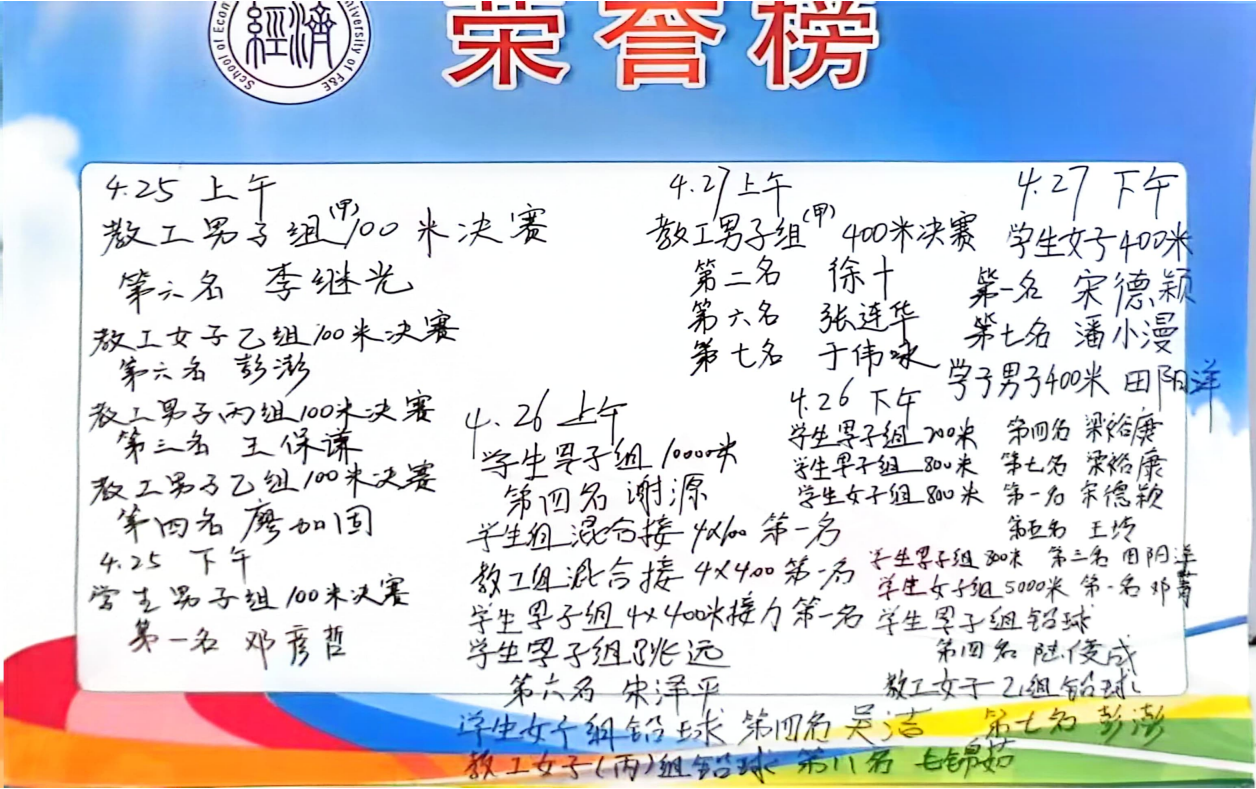 經濟
School of Econ
University of F&E
荣誉榜
4.25 上午
教工男子组(甲)100米决赛
第六名 李继光
教工女子乙组100米决赛
第六名 彭澎
教工男子丙组100米决赛
第三名 王保谦
教工男子乙组100米决赛
第四名 廖加固
4.25 下午
学生男子组100米决赛
第一名 邓彦哲
4.26 上午
学生男子组10000米
第四名 谢源
学生组混合接4×100 第一名
教工组混合接4×400第一名
学生男子组4×400米接力第一名
学生男子组跳远
第六名 宋泽平
学生女子组铅球 第四名 吴洁
教工女子(丙)组铅球 第八名 毛锦茹
4.27上午
教工男子组(甲)400米决赛
第二名 徐十
第六名 张连华
第七名 于伟咏
4.26 下午
学生男子组200米 第四名 梁裕康
学生男子组800米 第七名 梁裕康
学生女子组800米 第一名 宋德颖
第五名 王
学生男子组800米 第三名 田阳洋
学生女子组5000米 第一名 邓菁
学生男子组铅球
第四名 陆俊成
教工女子乙组铅球
第七名 彭澎
4.27 下午
学生女子400米
第一名 宋德颖
第七名 潘小漫
学子男子400米 田阳洋